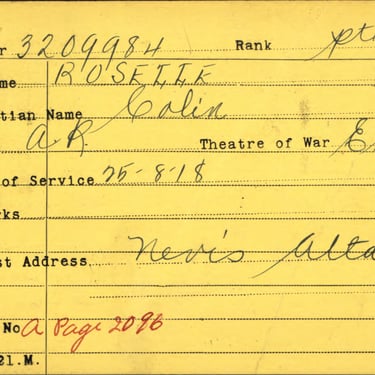 r 3209984 Rank Pte
me ROSETTE
tian Name Colin
A.R. Theatre of War E
of Service 25-8-18
rks
st Address Nevis Alta
No A Page 2096
21.M.